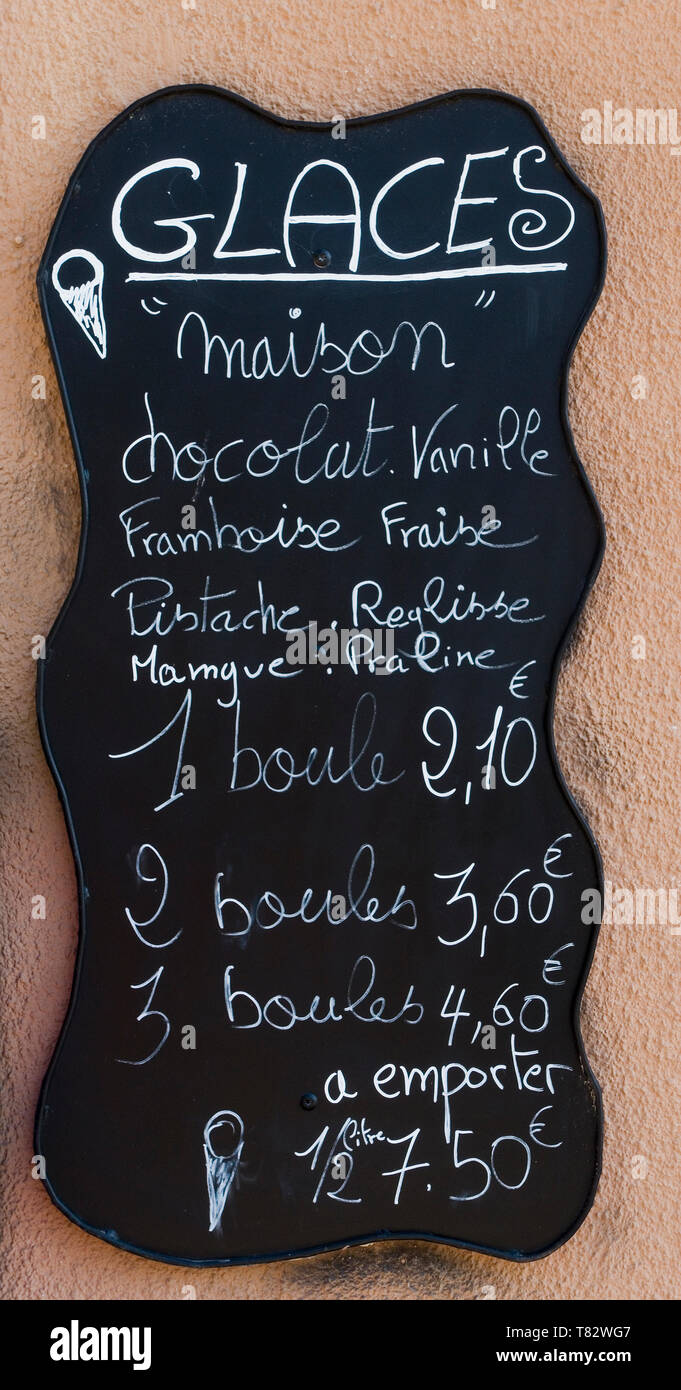 GLACES
"maison"
chocolat. Vanille
Framboise Fraise
Pistache. Reglisse
Mamgue : Praline
1 boule 2,10€
2 boules 3,60€
3 boules 4,60€
a emporter
1/2 litre 7.50€
alamy
Image ID: T82WG7
www.alamy.com